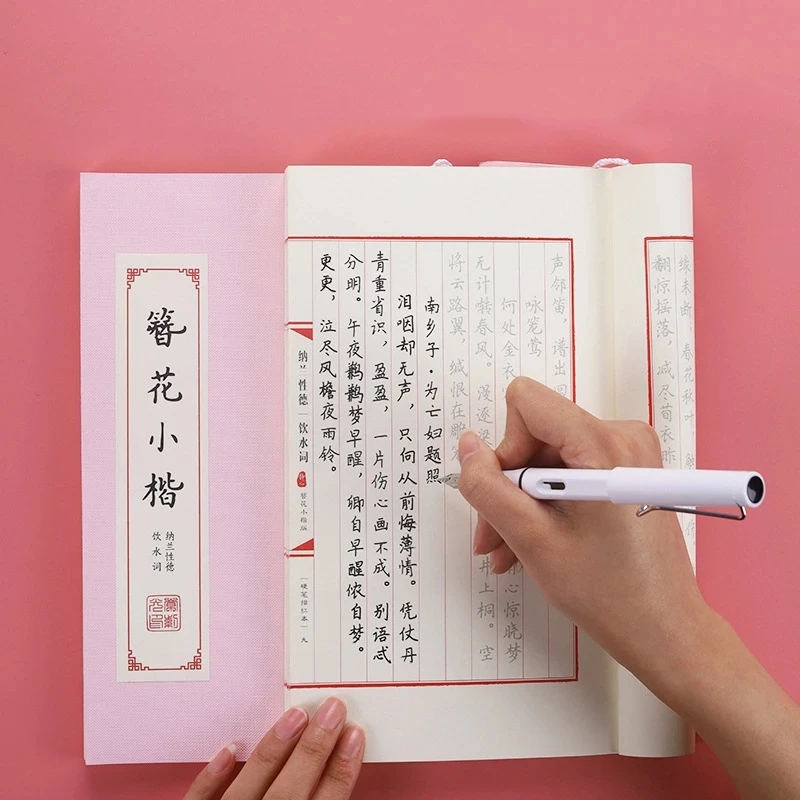 簪花小楷
纳兰性德
饮水词
缘未断，春花秋叶，
翻惊摇落，减尽荀衣昨
声邻笛，谱出回
咏笼莺
何处金衣 心惊晓梦
无计啭春风。漫逐梁 井上桐。空
将云路翼，缄恨在雕笼
南乡子·为亡妇题照
泪咽却无声，只向从前悔薄情。凭仗丹
青重省识，盈盈，一片伤心画不成。别语忒
分明。午夜鹣鹣梦早醒，卿自早醒侬自梦。
更更，泣尽风檐夜雨铃。
纳兰性德｜饮水词
簪花小楷版
硬笔描红本 九